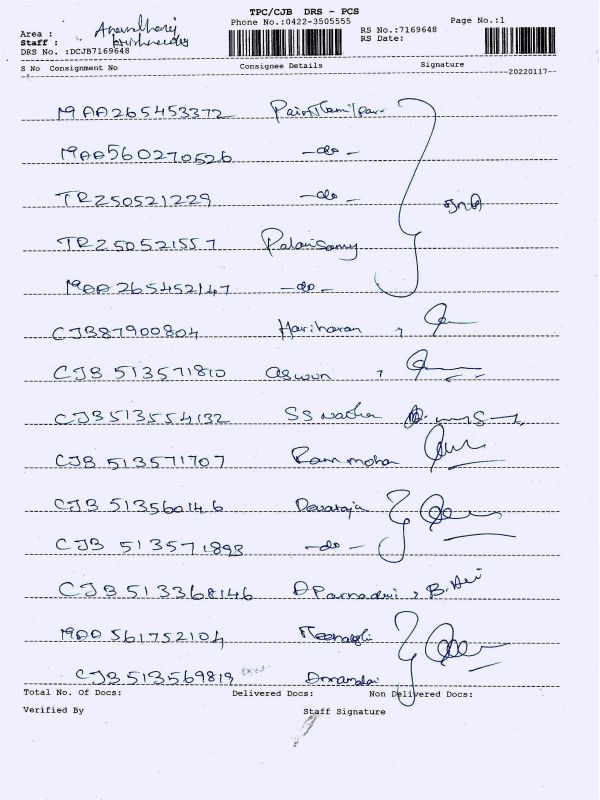 TPC/CJB DRS - PCS
Phone No.:0422-3505555 Page No.:1
Area :
Staff :
DRS No. :DCJB7169648
RS No.:7169648
RS Date:
S No Consignment No Consignee Details Signature
20220117
MAA265453372
MAA560270526 -do-
TRZ50521229 -do-
TRZ50521557 Palanisamy
MAA265452147 -do-
CJB87900804 Hariharan
CJB 513571810 aswun
CJB513554132
CJB 513571707 Ram mohan
CJB 513560146 Devaraja
CJB 513571898 -do-
CJB 513368146
MAA 561752104
CJB513569819 Annamalai
Total No. Of Docs: Delivered Docs: Non Delivered Docs:
Verified By Staff Signature